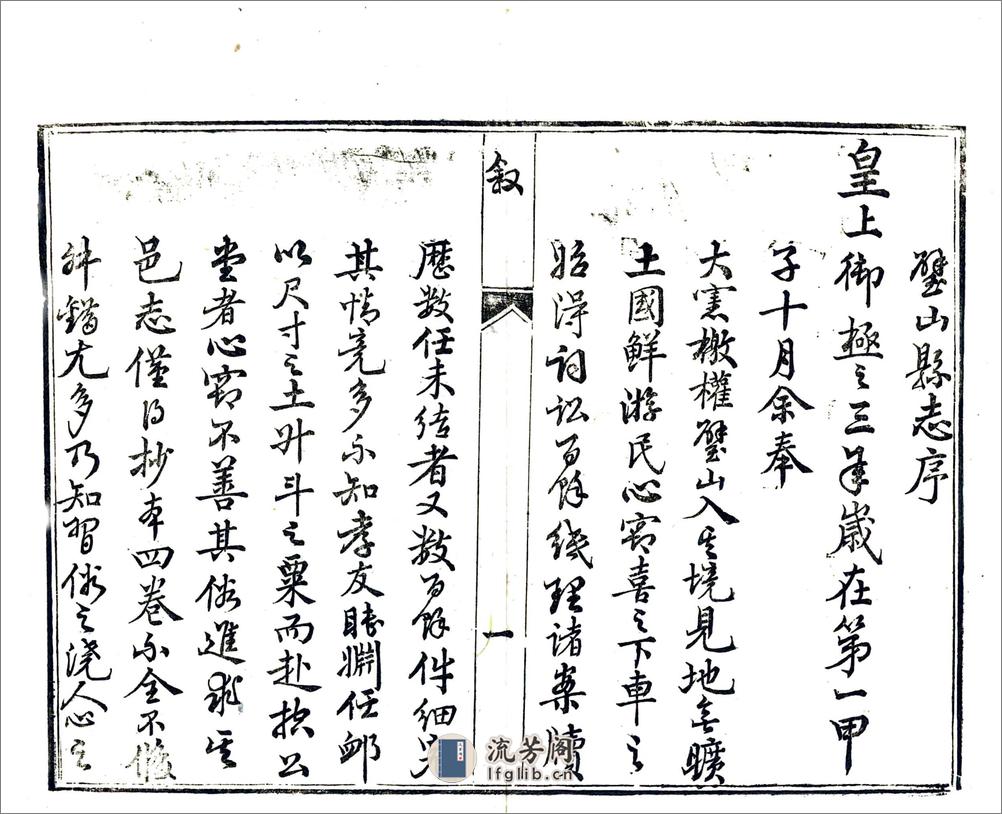 璧山縣志序
皇上御極之三年歲在第一甲
子十月余奉
大憲檄權璧山入其境見地無曠
土國鮮游民心竊喜之下車之
始淂詞訟百餘綫理諸案牘
叙
一
歷數任未結者又數百餘件細究
其情竟多不知孝友睦婣任卹
以尺寸之土升斗之粟而赴控公
堂者心竊不善其俗進求其
邑志僅得抄本四卷不全不備
舛錯尤多乃知習俗之澆人心之
流芳閣
lfglib.cn